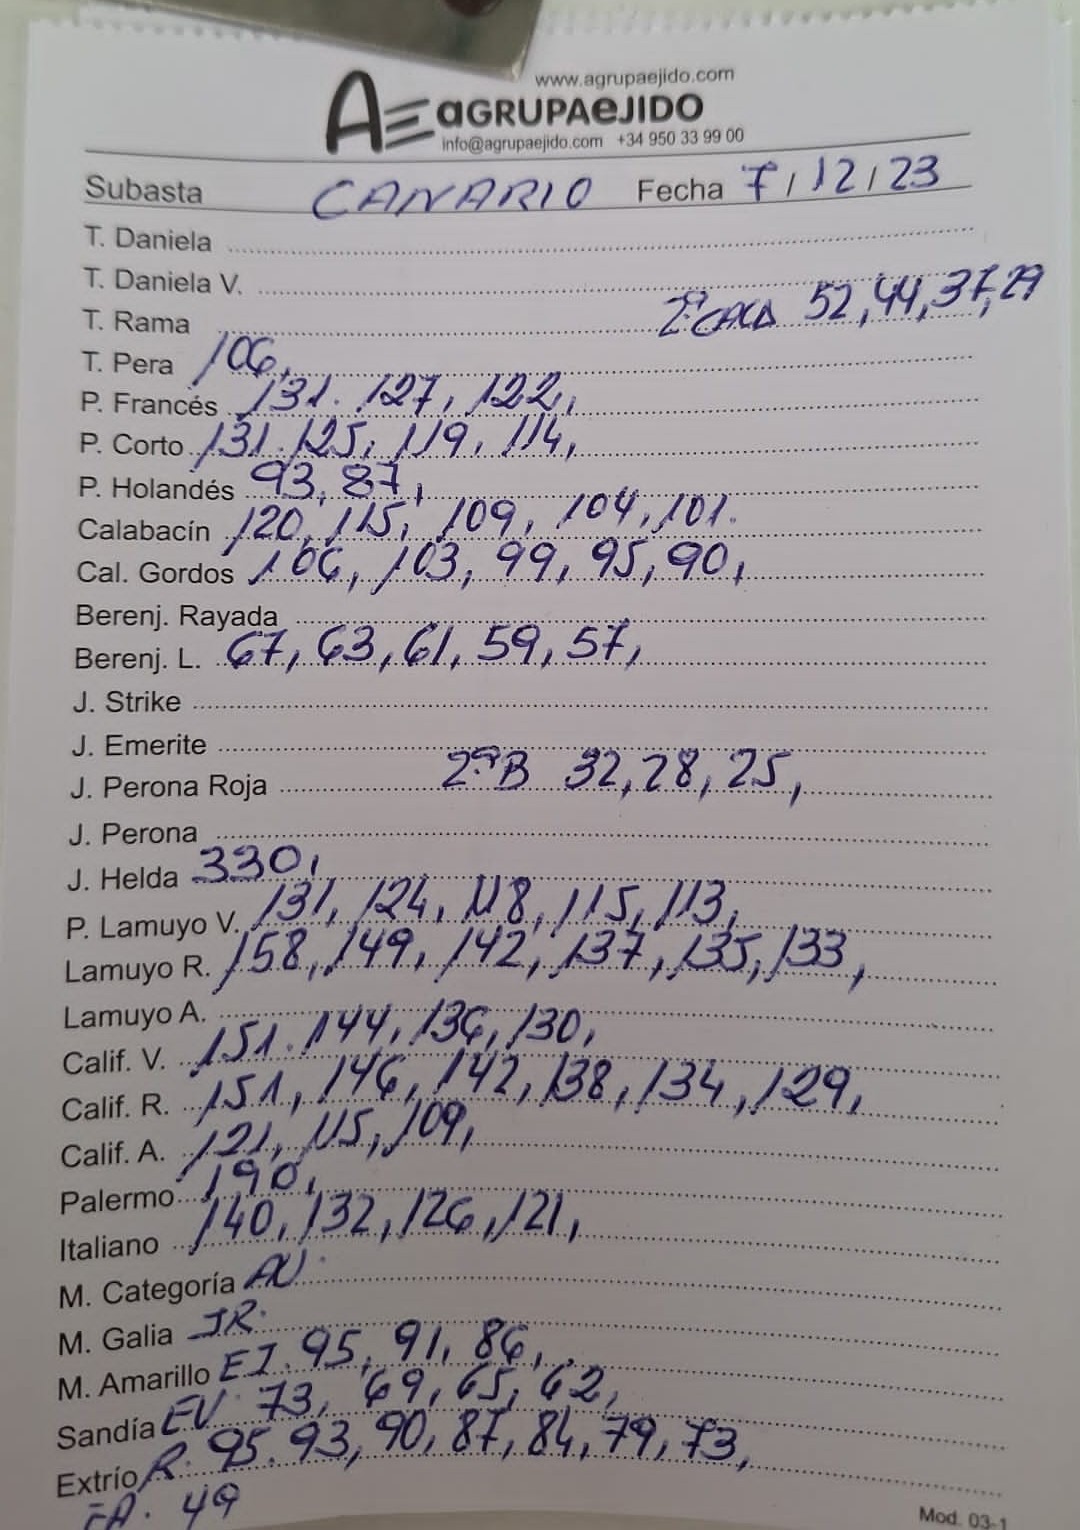 www.agrupaejido.com
AE aGRUPAeJIDO
info@agrupaejido.com +34 950 33 99 00
Subasta CANARIO Fecha 7/12/23
T. Daniela
T. Daniela V.
T. Rama 2ª 52,44,37,29
T. Pera 106,
P. Francés 131. 127, 122,
P. Corto 131. 125, 119, 114,
P. Holandés 93, 87,
Calabacín 120, 115, 109, 104, 101.
Cal. Gordos 106, 103, 99, 95, 90,
Berenj. Rayada
Berenj. L. 67, 63, 61, 59, 57,
J. Strike
J. Emerite
J. Perona Roja 2ªB 32, 28, 25,
J. Perona
J. Helda 330,
P. Lamuyo V. 131, 124, 118, 115, 113,
Lamuyo R. 158, 149, 142, 137, 135, 133,
Lamuyo A.
Calif. V. 151. 144, 136, 130,
Calif. R. 151, 146, 142, 138, 134, 129,
Calif. A. 121, 115, 109,
Palermo 190,
Italiano 140, 132, 126, 121,
M. Categoría AU.
M. Galia JR.
M. Amarillo EI. 95, 91, 86,
Sandía EV. 73, 69, 65, 62,
Extrío R. 95. 93, 90, 87, 84, 79, 73,
EA. 49
Mod. 03-1